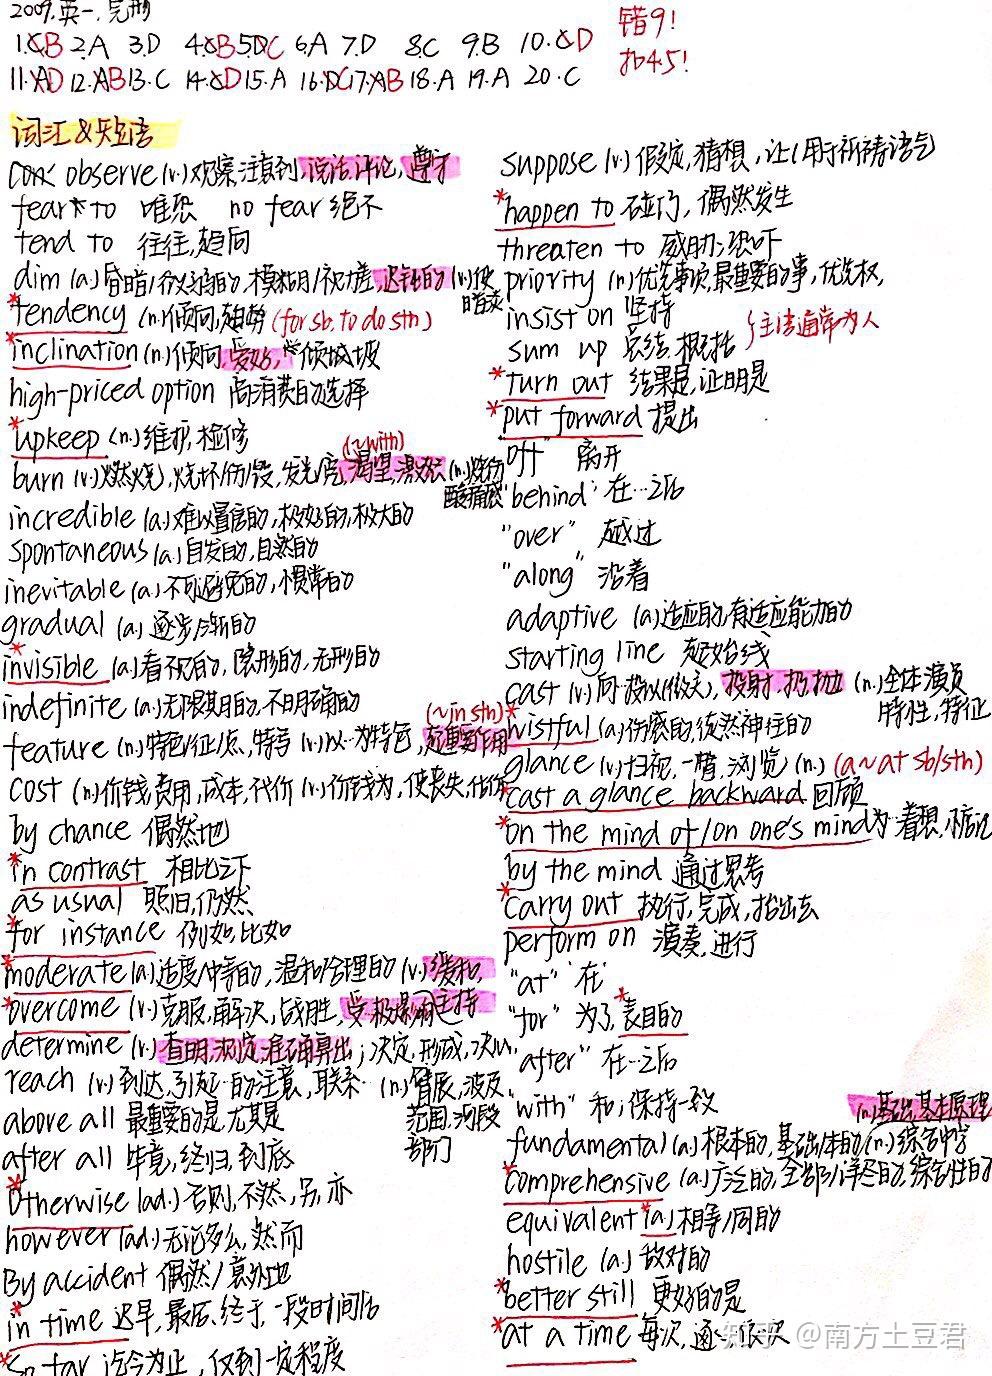 2009.英一.完形
1.CB 2.A 3.D 4.CB 5.DC 6.A 7.D 8.C 9.B 10.CD
11.AD 12.AB 13.C 14.CD 15.A 16.DC 17.AB 18.A 19.A 20.C
错9!
扣4.5!
词汇&短语
observe (v.) 观察,注意到,说话,评论,遵守
fear to 唯恐 no fear 绝不
tend to 往往,趋向
dim (a.) 昏暗/微弱的,模糊的/视力差,迟钝的 (v.)使暗淡
*tendency (n.)倾向,趋势 (for sb. to do sth)
*inclination (n.)倾向,爱好,倾斜,坡
high-priced option 高消费的选择
*upkeep (n.) 维护,检修
burn (v.)燃烧,烧坏/伤/毁,发光/亮,渴望,激怒 (~with) (n.)烧伤
incredible (a.)难以置信的,极好的,极大的
spontaneous (a.)自发的,自然的
inevitable (a.)不可避免的,惯常的
gradual (a.) 逐步/渐的
*invisible (a.)看不见的,隐形的,无形的
indefinite (a.)无限期的,不明确的
feature (n.)特色/征/点,特写 (v.)以…为特色,起重要作用 (~in sth)
cost (n.)价钱,费用,成本,代价 (v.)价钱为,使丧失,估价
by chance 偶然地
*in contrast 相比之下
as usual 照旧,仍然
*for instance 例如,比如
*moderate (a.)适度/中等的,温和/合理的 (v.)缓和,主持
*overcome (v.)克服,解决,战胜,受极大影响
determine (v.)查明,测定,准确算出;决定,形成,决心
reach (v.)到达,引起…的注意,联系… (n.)臂展,波及范围,河段,部门
above all 最重要的是,尤其是
after all 毕竟,终归,到底
*otherwise (ad.) 否则,不然,另,亦
however (ad.)无论多么,然而
By accident 偶然/意外地
*in time 迟早,最后,终于,一段时间后
*so far 迄今为止,仅到一定程度
suppose (v.) 假定,猜想,让(用于祈祷语气)
*happen to 碰巧,偶然发生
threaten to 威胁;恐吓
priority (n.)优先事项,最重要的事,优先权,
insist on 坚持
sum up 总结,概括 }主语通常为人
*turn out 结果是,证明是
*put forward 提出
"off" 离开
"behind" 在…之后
"over" 越过
"along" 沿着
adaptive (a.)适应的,有适应能力的
starting line 起始线
cast (v.)向…投以(微笑),投射,扔,抛 (n.)全体演员,特性,特征
*wistful (a.)伤感的,徒然神往的
glance (v.)扫视,一瞥,浏览 (n.) (a~at sb/sth)
*cast a glance backward 回顾
*on the mind of/on one's mind 为…着想,惦记
by the mind 通过思考
*carry out 执行,完成,抬出去
perform on 演奏,进行
"at" 在
"for" 为了,*表目的
"after" 在…之后
"with" 和;保持一致
fundamental (a.)根本的,基础/本的 (n.)基础,基本原理
*comprehensive (a.)广泛的,全部/详尽的,综合性的 (n.)综合中学
equivalent *(a.)相等/同的
hostile (a.) 敌对的
*better still 更好的是
*at a time 每次,逐一,依次
知乎 @南方土豆君